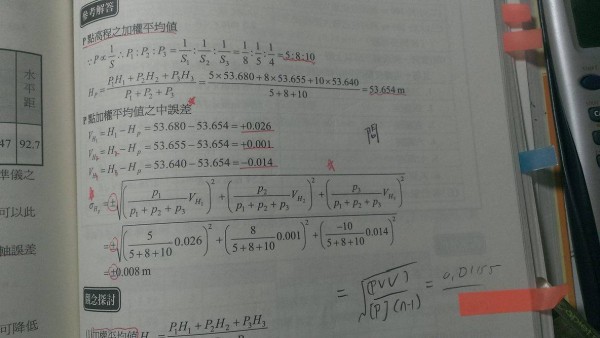 參考解答
P 點高程之加權平均值
∵ P ∝ 1/S ∴ P₁ : P₂ : P₃ = 1/S₁ : 1/S₂ : 1/S₃ = 1/8 : 1/5 : 1/4 = 5 : 8 : 10
H_P = (P₁H₁ + P₂H₂ + P₃H₃)/(P₁ + P₂ + P₃) = (5×53.680 + 8×53.655 + 10×53.640)/(5+8+10) = 53.654 m
P 點加權平均值之中誤差
V_H₁ = H₁ − H_P = 53.680 − 53.654 = +0.026
問
V_H₂ = H₂ − H_P = 53.655 − 53.654 = +0.001
V_H₃ = H₃ − H_P = 53.640 − 53.654 = −0.014
σ_H_P = ±√((p₁/(p₁+p₂+p₃) V_H₁)² + (p₂/(p₁+p₂+p₃) V_H₂)² + (p₃/(p₁+p₂+p₃) V_H₃)²)
= ±√((5/(5+8+10) 0.026)² + (8/(5+8+10) 0.001)² + (−10/(5+8+10) 0.014)²)
= ±0.008 m
= √([PVV]/([P](n-1))) = 0.0115
觀念探討
加權平均值 H = P₁H₁ + P₂H₂ + P₃H₃
水平距
47 92.7
準儀之
可以此
軸誤差
可降低